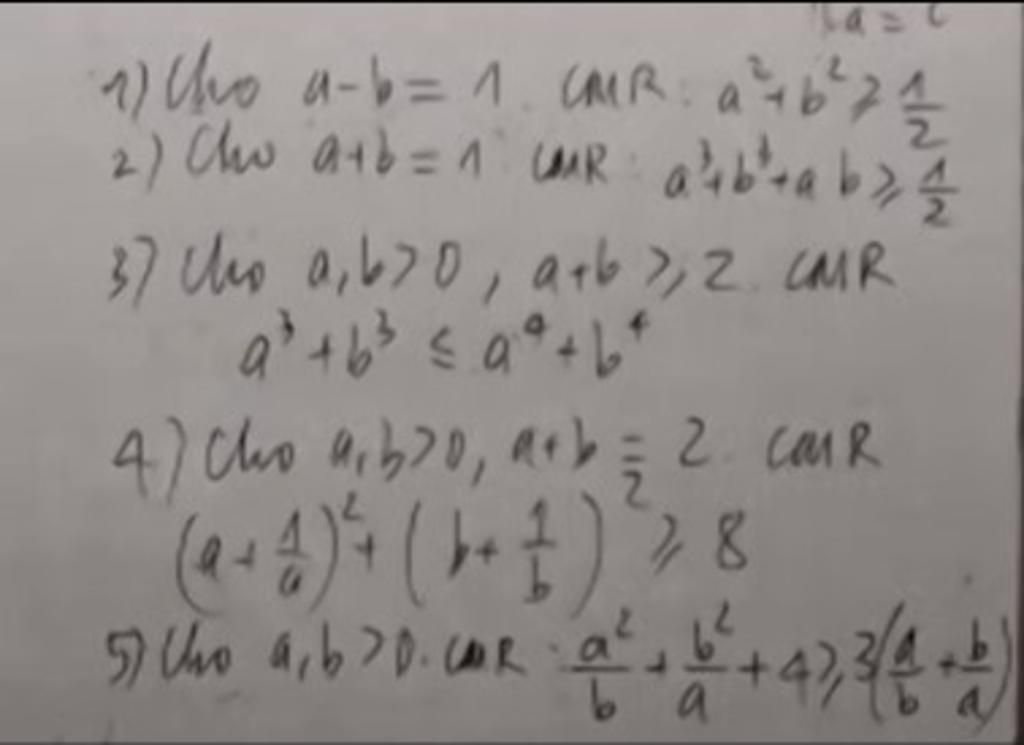 a =
1) Cho a-b = 1. CMR: a² + b² ⩾ 1/2
2) Cho a+b = 1 CMR: a³+b³+ab ⩾ 1/2
3) Cho a,b>0, a+b ⩾ 2. CMR
a³ + b³ ≤ a⁴ + b⁴
4) Cho a,b>0, a+b = 2. CMR
(a + 1/a)² + (b + 1/b)² ⩾ 8
5) Cho a,b>0. CMR: a²/b + b²/a + 4 ⩾ 3(a/b + b/a)